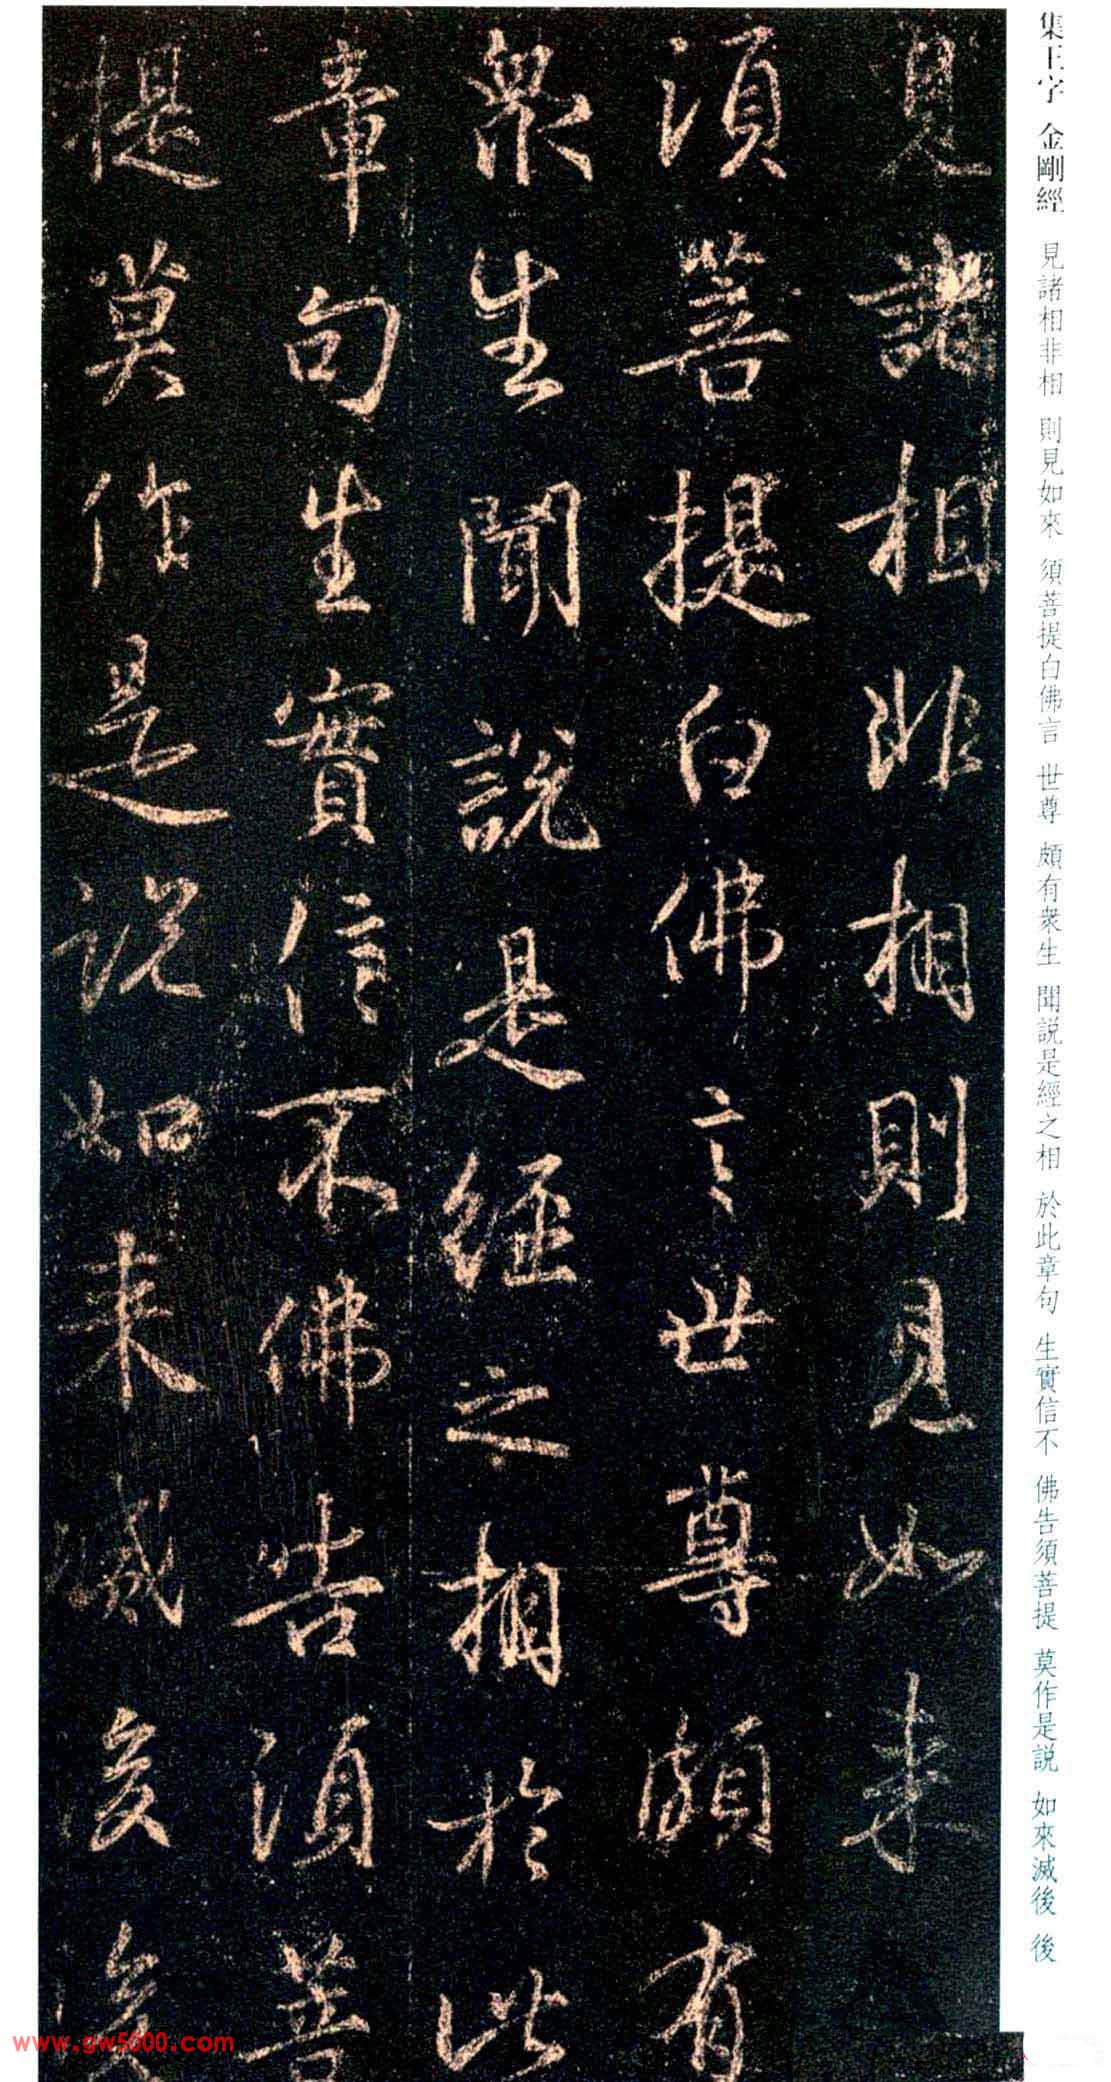 集王字 金剛經 見諸相非相 則見如來 須菩提白佛言 世尊 頗有衆生 聞説是經之相 於此章句 生實信不 佛告須菩提 莫作是説 如來滅後 後
見諸相非相則見如來
須菩提白佛言世尊頗有
衆生聞說是經之相於此
章句生實信不佛告須菩
提莫作是說如來滅後後
www.gw5000.com